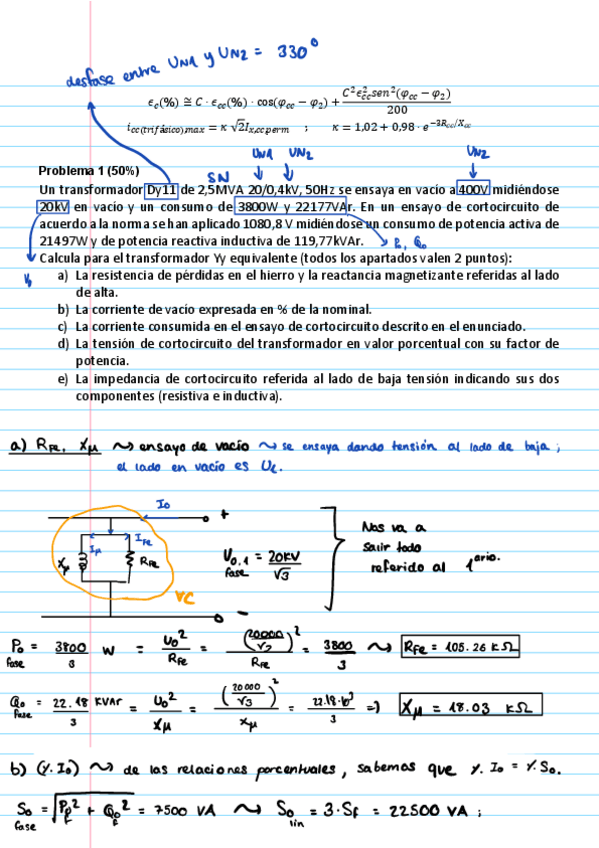 desfase entre UN1 y UN2 = 330°
ϵc(%) ≅ C · ϵcc(%) · cos(φcc − φ2) + C²ϵ²cc sen²(φcc − φ2) / 200
icc(trifásico)max = κ √2 Ix,ccperm ; κ = 1,02 + 0,98 · e^−3Rcc/Xcc
UN1 UN2 UN2
Problema 1 (50%) SN
Un transformador Dy11 de 2,5MVA 20/0,4kV, 50Hz se ensaya en vacío a 400V midiéndose
20kV en vacío y un consumo de 3800W y 22177VAr. En un ensayo de cortocircuito de
acuerdo a la norma se han aplicado 1080,8 V midiéndose un consumo de potencia activa de
21497W y de potencia reactiva inductiva de 119,77kVAr. P0, Q0
Calcula para el transformador Yy equivalente (todos los apartados valen 2 puntos):
a) La resistencia de pérdidas en el hierro y la reactancia magnetizante referidas al lado
de alta.
b) La corriente de vacío expresada en % de la nominal.
c) La corriente consumida en el ensayo de cortocircuito descrito en el enunciado.
d) La tensión de cortocircuito del transformador en valor porcentual con su factor de
potencia.
e) La impedancia de cortocircuito referida al lado de baja tensión indicando sus dos
componentes (resistiva e inductiva).
a) RFe, Xμ ⤳ ensayo de vacío ⤳ se ensaya dando tensión al lado de baja;
el lado en vacío es
I0 +
Iμ IFe
Xμ RFe
U0,1 fase = 20KV / √3
Nos va a
salir todo
referido al 1ario.
VC −
P0 fase = 3800/3 W = U0²/RFe = (20000/√3)²/RFe = 3800/3 ⤳ RFe = 105.26 KΩ
Q0 fase = 22.18/3 KVAr = U0²/Xμ = (20000/√3)²/Xμ = 22.18·10³/3 => Xμ = 18.03 KΩ
b) (%.I0) ⤳ de las relaciones porcentuales, sabemos que %.I0 = %.S0.
S0 fase = √(P0f² + Q0f²) = 7500 VA ⤳ S0 lin = 3·Sf = 22500 VA ;